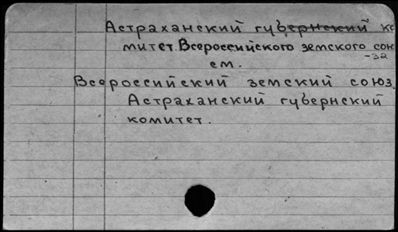 Астраханский губернский ко
митет Всероссийского земского сою
-за
см.
Всероссийский земский союз.
Астраханский губернский
комитет.